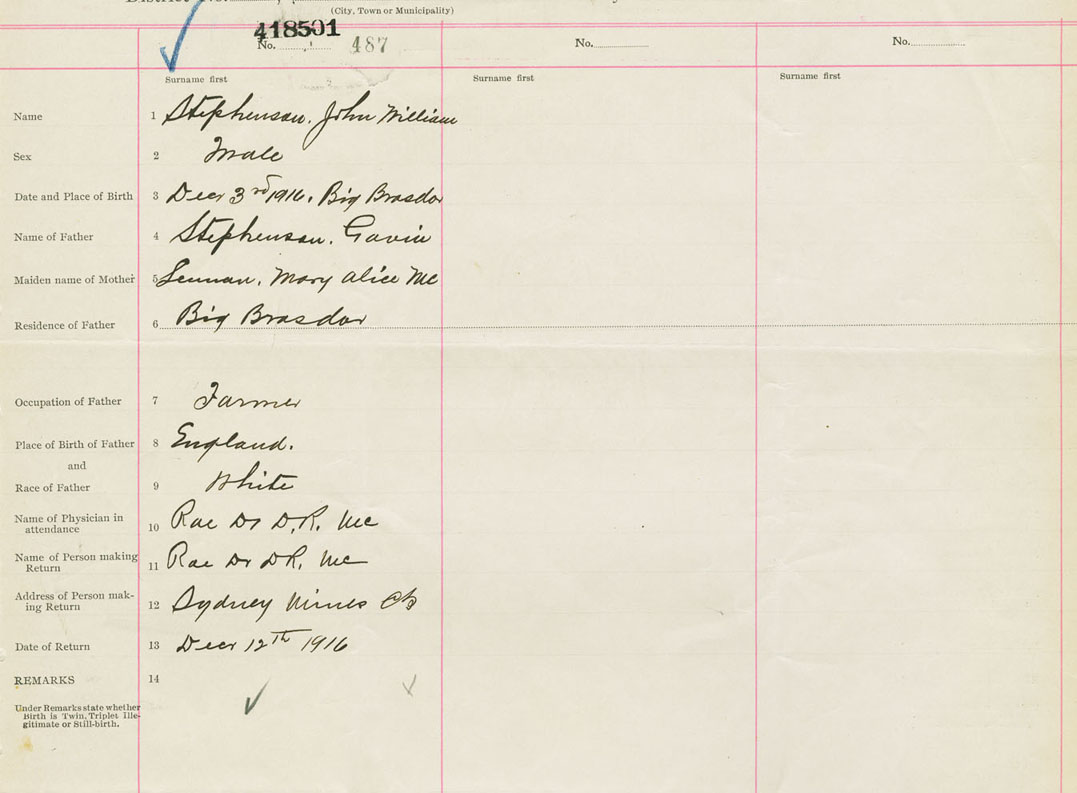 District No.
(City, Town or Municipality)
418501
No. 487 No. No.
Surname first Surname first Surname first
Name 1 Stephenson. John William
Sex 2 Male
Date and Place of Birth 3 Decr 3rd 1916. Big Brasdor
Name of Father 4 Stephenson. Gavin
Maiden name of Mother 5 Lennan. Mary Alice Mc
Residence of Father 6 Big Brasdor
Occupation of Father 7 Farmer
Place of Birth of Father 8 England.
and
Race of Father 9 White
Name of Physician in
attendance 10 Rae Dr D.R. Mc
Name of Person making
Return 11 Rae Dr D.R. Mc
Address of Person mak-
ing Return 12 Sydney Mines CB
Date of Return 13 Decr 12th 1916
REMARKS 14
Under Remarks state whether
Birth is Twin, Triplet Ille-
gitimate or Still-birth.